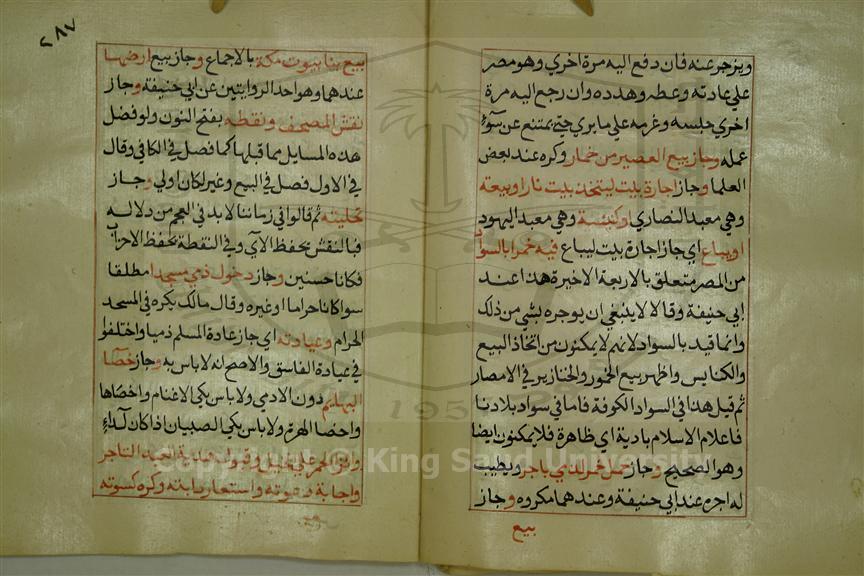 وينزجر عنه فان دفع اليه مرة اخري وهو مصر
علي عادته وعظه وهدده وان رجع اليه مرة
اخري حبسه وغرمه علي ما يري حتي يمتنع عن سوء
عمله وجاز بيع العصير من خمار وكره عند بعض
العلما وجاز اجارة بيت ليتخذ بيت نار او بيعه
وهي معبد النصاري او كنيسة وهي معبد اليهود
او يباع اي جاز اجارة بيت ليباع فيه خمرا بالسواد
من المصر متعلق بالاربعة الاخيرة هذا عند
ابي حنيفة وقالا لا ينبغي ان يوجره بشي من ذلك
وانما قيد بالسواد لانهم لا يمكنون من اتخاذ البيع
والكنايس واظهر بيع الخمور والخنازير في الامصار
ثم قيل هذا في السواد الكوفة فاما في سواد بلادنا
فاعلام الاسلام بادية اي ظاهرة فلا يمكنون ايضا
وهو الصحيح وجاز حمل خمر لذمي باجر ويطيب
له اجره عند ابي حنيفة وعندهما مكروه وجاز
بيع
٢٨٧
بيع بنا بيوت مكة بالاجماع وجاز بيع ارضها
عندهما وهو احد الروايتين عن ابي حنيفة وجاز
نقش المصحف ونقطه بفتح النون ولو فصل
هذه المسايل مما قبلها كما فصل في الكافي وقال
في الاول فصل في البيع وغير لكان اولي وجاز
تحليته ثم قالوا في زماننا لابد في العجم من دلاله
فبالنقش بحفظ الآي وفي النقطة بحفظ الاعراب
فكانا حسنين وجاز دخول ذمي مسجدا مطلقا
سوا كانا حراما او غيره وقال مالك يكره في المسجد
الحرام وعيادته اي جاز عادة المسلم ذميا واختلفوا
في عيادة الفاسق والاصح انه لا باس به وجاز خصا
البهايم دون الادمي ولا باس بكي الاغنام واخصاها
واخصا الهرة ولا باس بكي الصبيان اذا كان لداء
وانزا الحمر علي الخيل وقبول هدية العبد التاجر
واجابة دعوته واستعار دابته وكره كسوته
Copyright © King Saud University
195